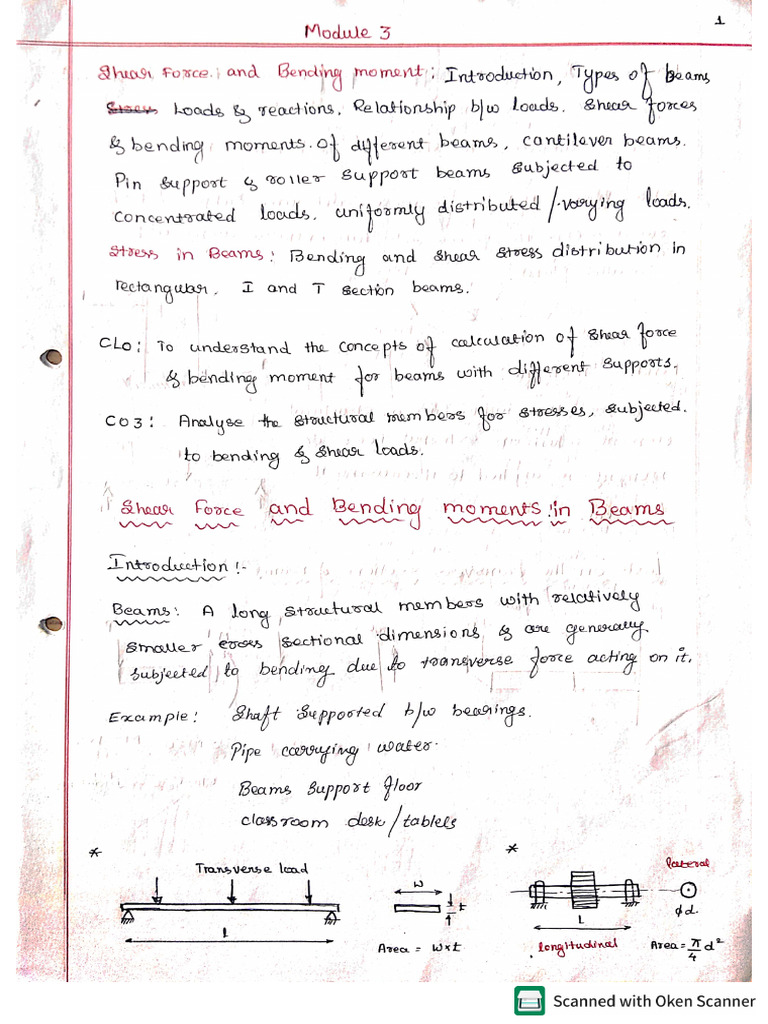 1
Module 3
Shear Force. and Bending moment: Introduction, Types of beams
Stress Loads & reactions, Relationship b/w loads. Shear forces
& bending moments. of different beams, cantilever beams.
Pin support & roller support beams subjected to
concentrated loads, uniformly distributed / varying loads.
Stress in Beams: Bending and shear stress distribution in
rectangular, I and T section beams.
CLO: To understand the concepts of calculation of shear force
& bending moment for beams with different supports,
CO3: Analyse the structural members for stresses, subjected.
to bending & shear loads.
Shear Force and Bending moments in Beams
Introduction:-
Beams: A long structural members with relatively
smaller cross sectional dimensions & are generally
subjected to bending due to transverse force acting on it.
Example: Shaft supported b/w bearings.
Pipe carrying water.
Beams support floor
classroom desk/tablels
* *
Transverse load w lateral
t
L ϕd.
l
Area = w×t longitudinal Area = π/4 d²
Scanned with Oken Scanner